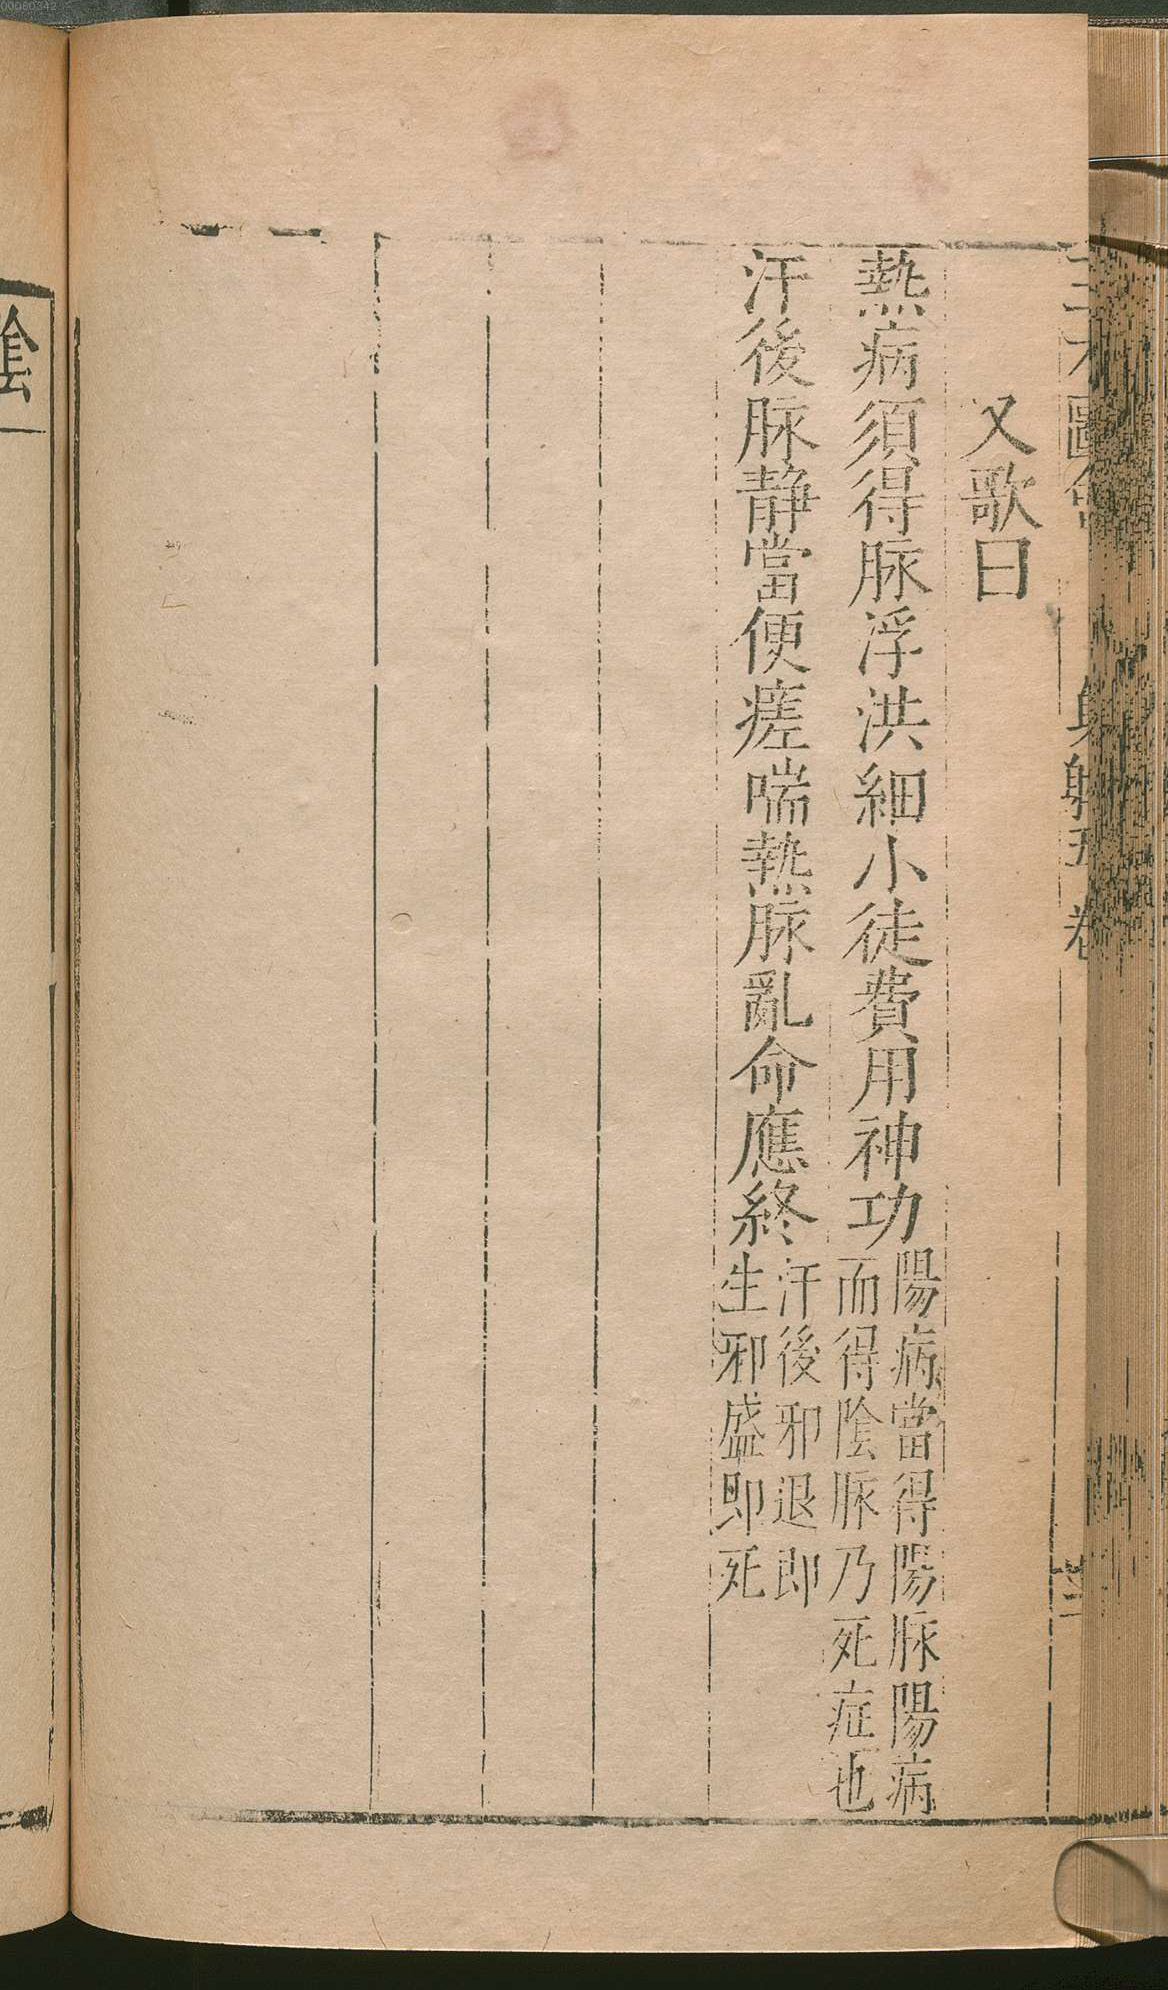 又歌曰
熱病須得脉浮洪細小徒費用神功
陽病當得陽脉陽病
而得陰脉乃死症也
汗後脉静當便瘥喘熱脉亂命應終
汗後邪退即
生邪盛即死
陰
00080342